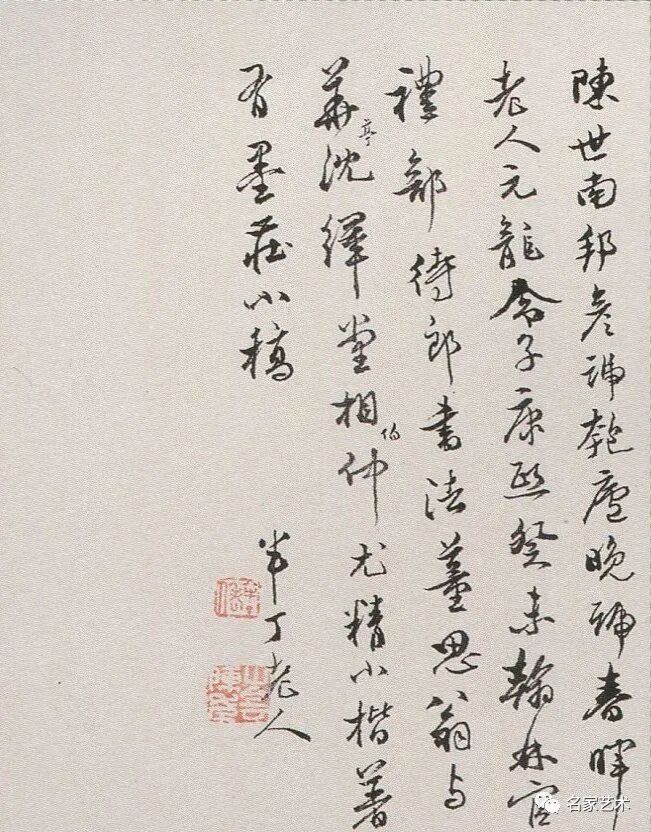 陳世南邦彦號匏廬晚號春暉
老人元龍令子康熙癸未翰林官
禮部侍郎書法董思翁与
華亭沈繹堂相伯仲尤精小楷著
有墨莊小稿
半丁老人
名家艺术